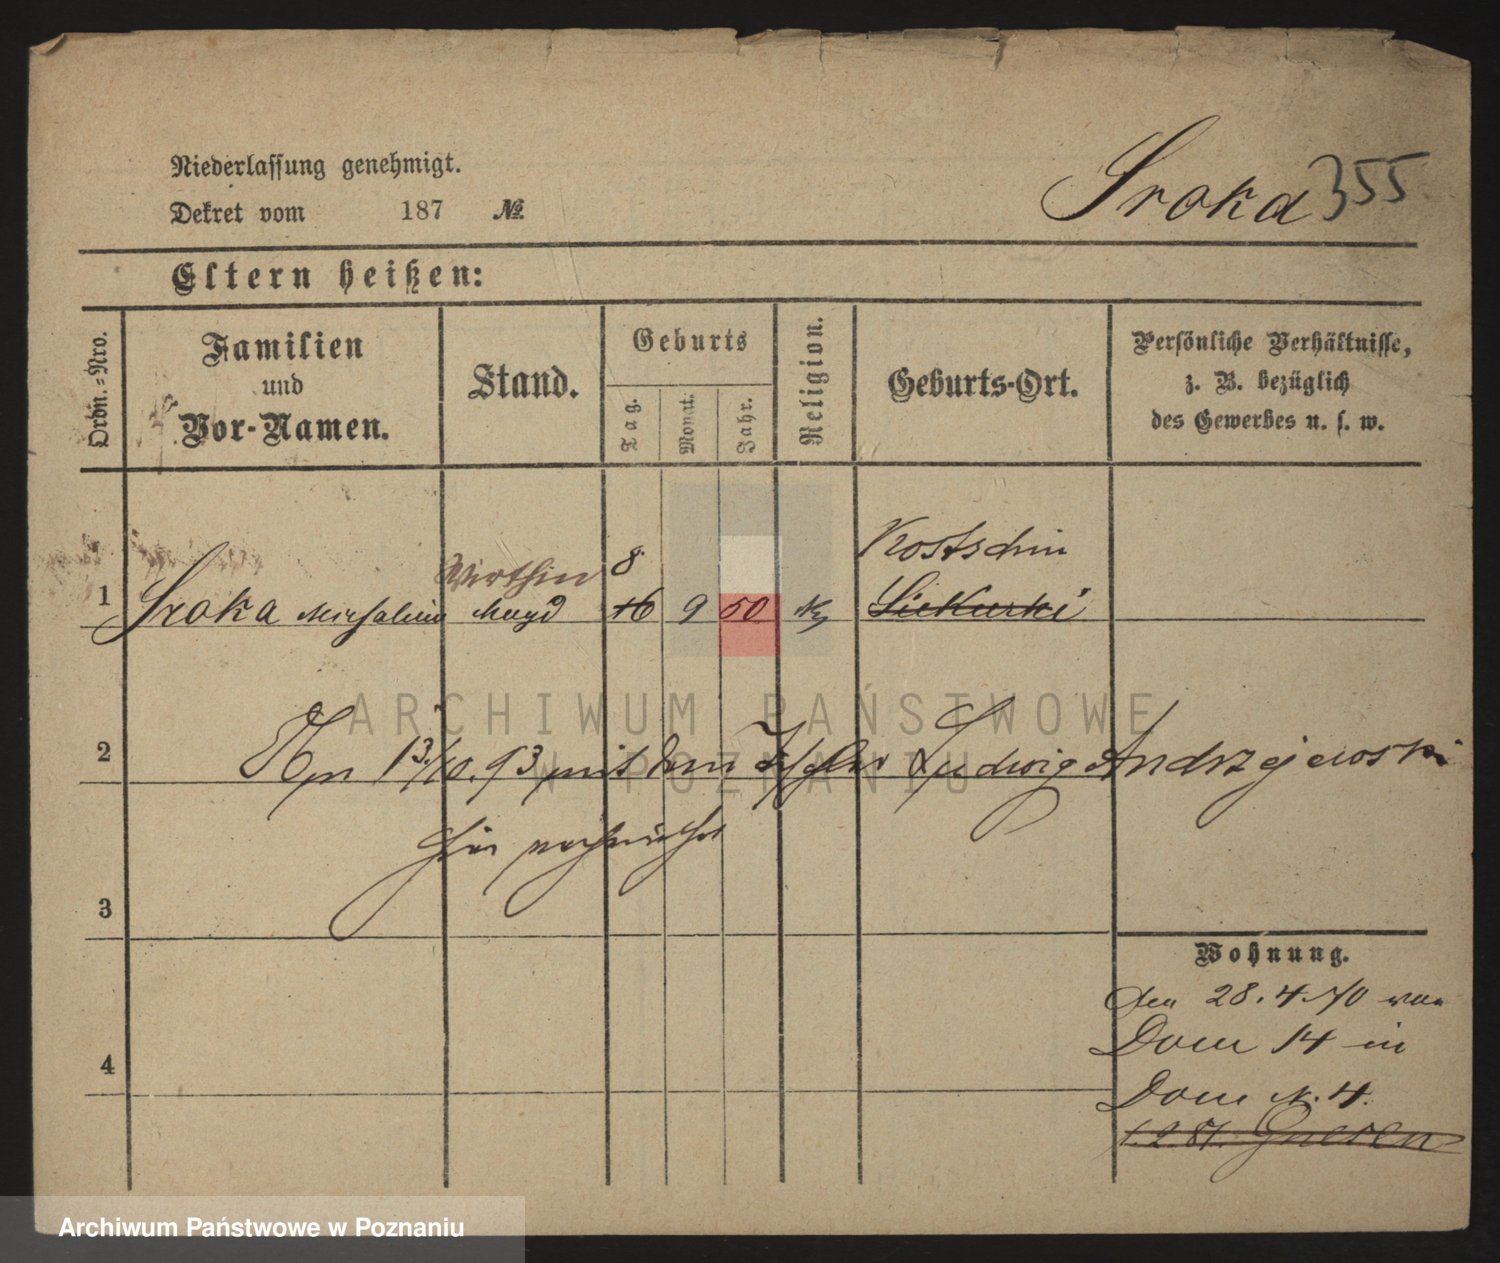 Niederlassung genehmigt.
Dekret vom 187 №
Sroka 355
Eltern heißen:
Ordn.-Nro.
Familien und Vor-Namen.
Stand.
Geburts
Tag.
Monat.
Jahr.
Religion.
Geburts-Ort.
Persönliche Verhältnisse,
z. B. bezüglich
des Gewerbes u. s. w.
Wirthin 8 Kostschin
1 Sroka Michalina Magd 16 9 50 K Siekurki
ARCHIWUM PAŃSTWOWE
W POZNANIU
2 13/10.93 mit dem Ludwig Andrzejewski
hier
3
Wohnung.
den 28.4.70 von
Dom 14 in
4
Dom N. 4.
Gnesen
Archiwum Państwowe w Poznaniu